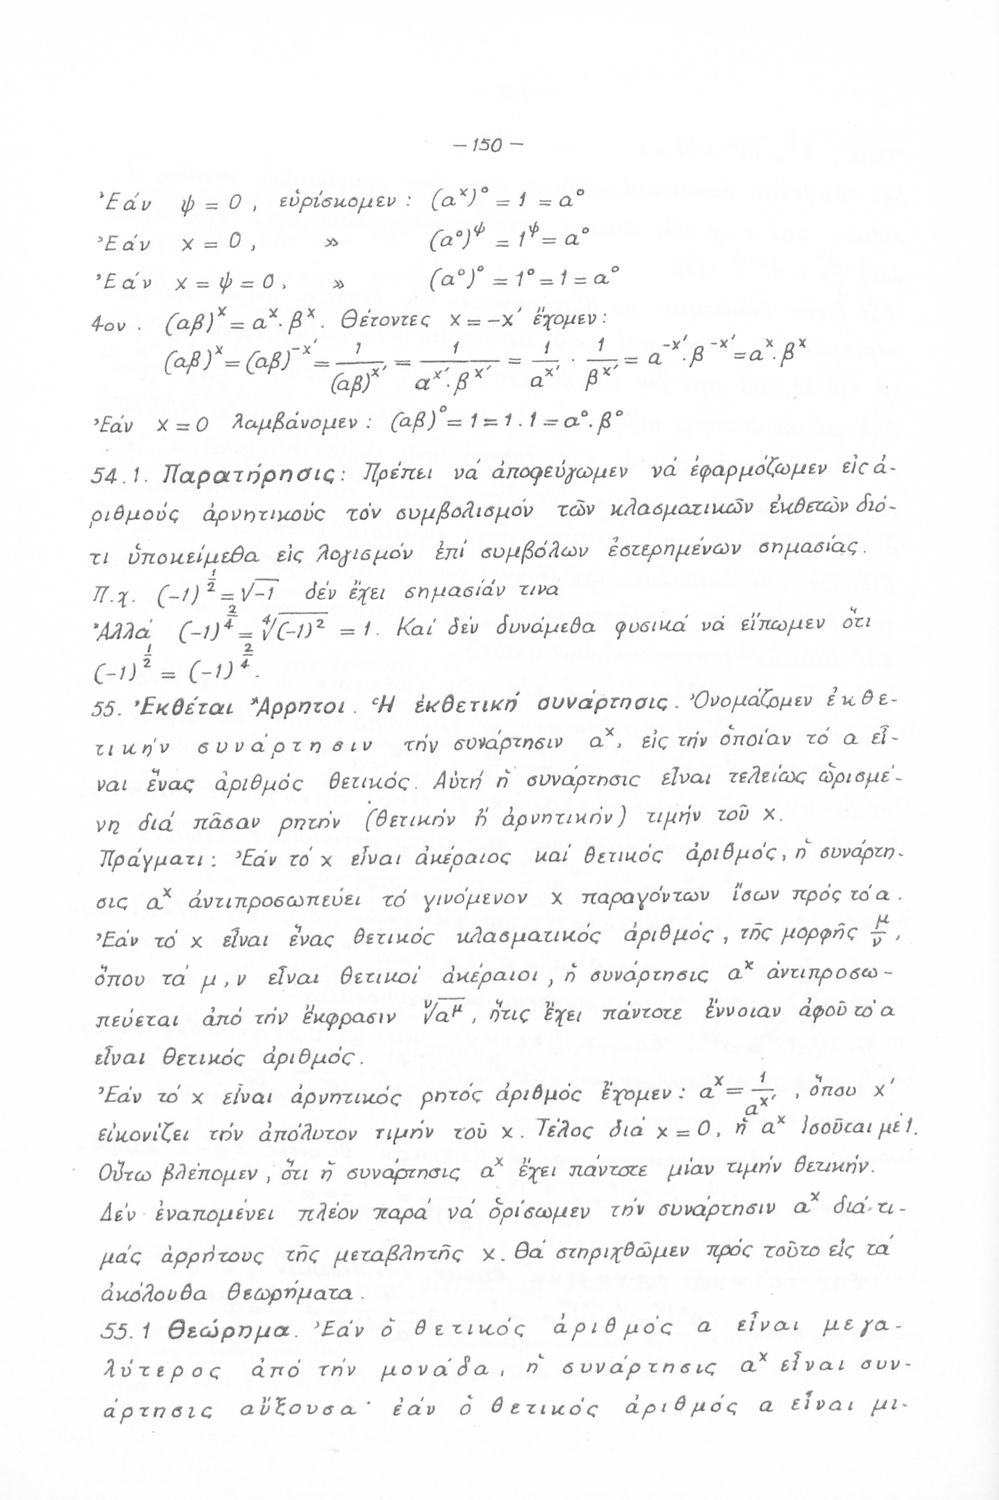 — 150 —
Ἐάν ψ = 0 , εὑρίσκομεν : (αˣ)⁰ = 1 = α⁰
Ἐάν x = 0 , » (α⁰)^ψ = 1^ψ = α⁰
Ἐάν x = ψ = 0 , » (α⁰)⁰ = 1⁰ = 1 = α⁰
4ον . (αβ)^x = α^x . β^x . Θέτοντες x = -x′ ἔχομεν :
(αβ)^x = (αβ)^{-x′} = 1/(αβ)^{x′} = 1/(α^{x′} . β^{x′}) = 1/α^{x′} . 1/β^{x′} = α^{-x′} . β^{-x′} = α^x . β^x
Ἐάν x = 0 λαμβάνομεν : (αβ)⁰ = 1 = 1 . 1 = α⁰ . β⁰
54.1. Παρατήρησις : Πρέπει νά ἀποφεύγωμεν νά ἐφαρμόζωμεν εἰς ἀ-
ριθμούς ἀρνητικούς τόν συμβολισμόν τῶν κλασματικῶν ἐκθετῶν διό-
τι ὑποκείμεθα εἰς λογισμόν ἐπί συμβόλων ἐστερημένων σημασίας .
Π.χ. (-1)^{1/2} = √-1 δέν ἔχει σημασίάν τινα
Ἀλλά (-1)^{2/4} = ⁴√(-1)² = 1 . Καί δέν δυνάμεθα φυσικά νά εἴπωμεν ὅτι
(-1)^{1/2} = (-1)^{2/4} .
55. Ἐκθέται Ἄρρητοι . Ἡ ἐκθετική συνάρτησις . Ὀνομάζομεν ἐκθε-
τικήν συνάρτησιν τήν συνάρτησιν α^x , εἰς τήν ὁποίαν τό α εἶ-
ναι ἕνας ἀριθμός θετικός . Αὐτή ἡ συνάρτησις εἶναι τελείως ὡρισμέ-
νη διά πᾶσαν ρητήν (θετικήν ἤ ἀρνητικήν) τιμήν τοῦ x .
Πράγματι : Ἐάν τό x εἶναι ἀκέραιος καί θετικός ἀριθμός , ἡ συνάρτη-
σις α^x ἀντιπροσωπεύει τό γινόμενον x παραγόντων ἴσων πρός τό α .
Ἐάν τό x εἶναι ἕνας θετικός κλασματικός ἀριθμός , τῆς μορφῆς μ/ν ,
ὅπου τά μ , ν εἶναι θετικοί ἀκέραιοι , ἡ συνάρτησις α^x ἀντιπροσω-
πεύεται ἀπό τήν ἔκφρασιν ᵛ√α^μ , ἥτις ἔχει πάντοτε ἔννοιαν ἀφοῦ τό α
εἶναι θετικός ἀριθμός .
Ἐάν τό x εἶναι ἀρνητικός ρητός ἀριθμός ἔχομεν : α^x = 1/α^{x′} , ὅπου x′
εἰκονίζει τήν ἀπόλυτον τιμήν τοῦ x . Τέλος διά x = 0 , ἡ α^x ἰσοῦται μέ 1 .
Οὕτω βλέπομεν , ὅτι ἡ συνάρτησις α^x ἔχει πάντοτε μίαν τιμήν θετικήν .
Δέν ἐναπομένει πλέον παρά νά ὁρίσωμεν τήν συνάρτησιν α^x διά τι-
μάς ἀρρήτους τῆς μεταβλητῆς x . Θά στηριχθῶμεν πρός τοῦτο εἰς τά
ἀκόλουθα θεωρήματα .
55.1 Θεώρημα . Ἐάν ὁ θετικός ἀριθμός α εἶναι μεγα-
λύτερος ἀπό τήν μονάδα , ἡ συνάρτησις α^x εἶναι συν-
άρτησις αὔξουσα · ἐάν ὁ θετικός ἀριθμός α εἶναι μι-